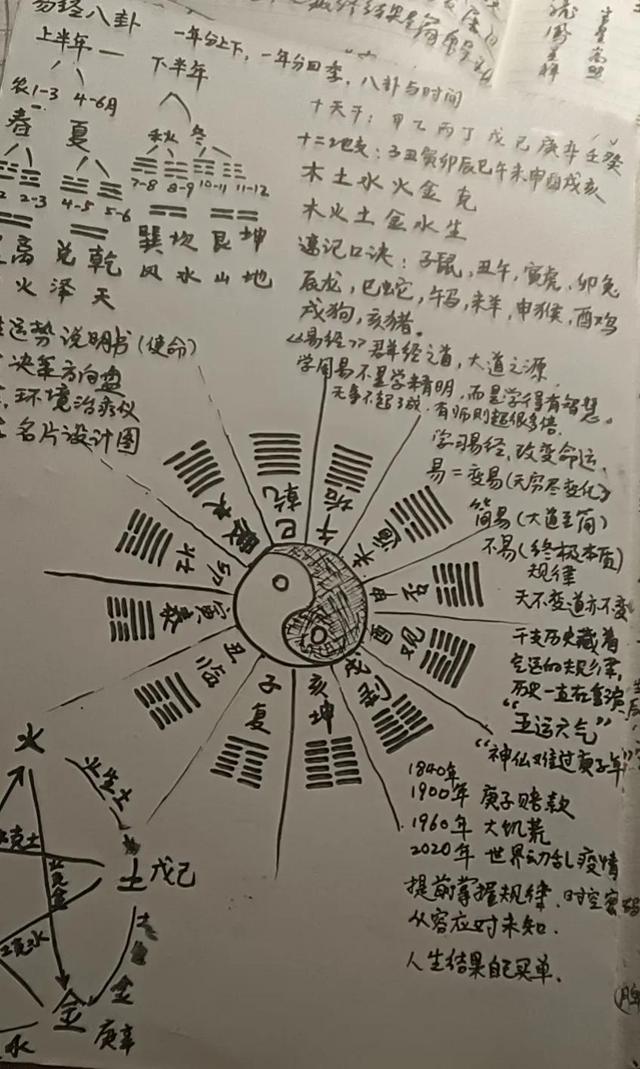 易经八卦
上半年—下半年
一年分上下，一年分四季，八卦与时间
农1-3 4-6月
春 夏 秋 冬
2-3 4-5 5-6 7-8 8-9 10-11 11-12
离 兑 乾 巽 坎 艮 坤
火 泽 天 风 水 山 地
十天干：甲乙丙丁戊己庚辛壬癸
十二地支：子丑寅卯辰巳午未申酉戌亥
木土水火金克
木火土金水生
速记口诀：子鼠，丑午，寅虎，卯兔
辰龙，巳蛇，午马，未羊，申猴，酉鸡
戌狗，亥猪。
《易经》群经之首，大道之源
学周易不是学未有明，而是学得有智慧。
无事不起3成，有师则超很多倍
运势说明书(使命)
决策方向盘
环境治疗仪
名片设计图
学习易经，改变命运，
易=变易(无穷尽变化)
简易(大道至简)
不易(终极本质)
规律
天不变道亦不变
干支历史藏着
空运的规律，
历史一直在重演
“五运六气”
“神仙难过庚子年”
巳 乾
午 姤
未
申 否
酉 观
戌 剥
亥 坤
子 复
丑 临
寅 泰
卯 壮
辰 夬
1840年
1900年 庚子赔款
1960年 大饥荒
2020年 世界动乱疫情
提前掌握规律，时空密码
从容应对未知.
人生结果自己买单.
火
火生土
土 戊己
火克金
土克水
金 庚辛
水